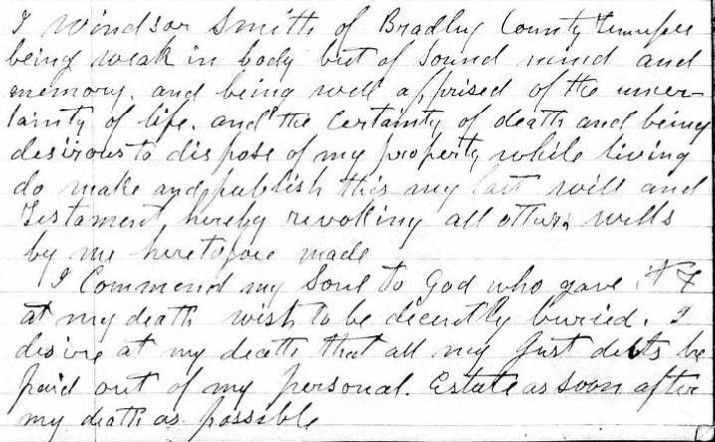 I Windsor Smith of Bradley County Tennessee
being weak in body but of sound mind and
memory. and being well apprised of the uncer-
tainty of life. and the certainty of death and being
desirous to dispose of my property while living
do make and publish this my last will and
Testament hereby revoking all other wills
by me heretofore made
I Commend my Soul to God who gave it &
at my death wish to be decently buried. I
desire at my death that all my Just debts be
paid out of my personal. Estate as soon after
my death as possible